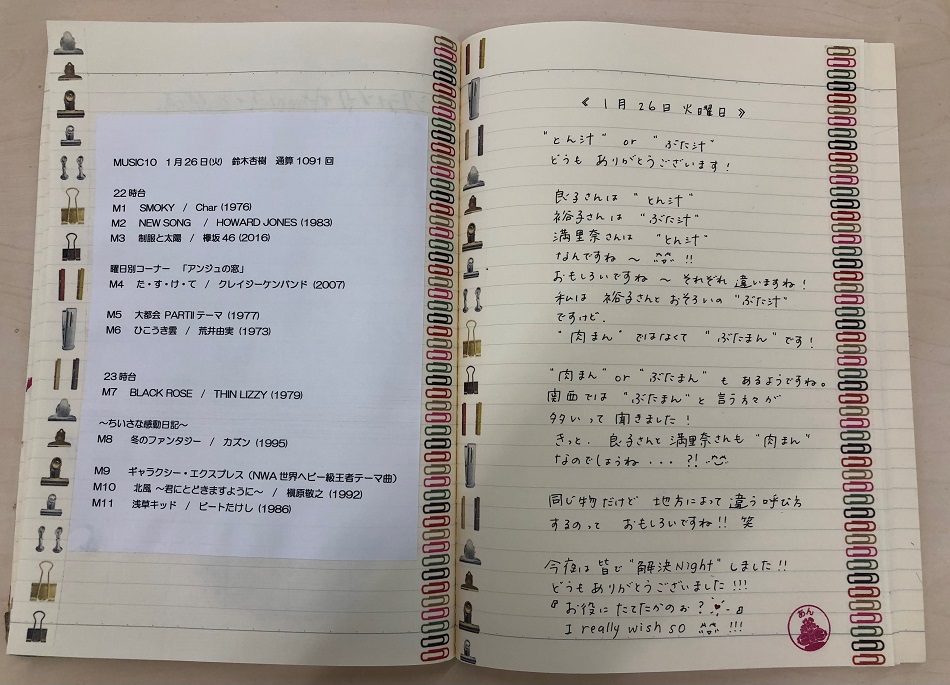 MUSIC10 1月26日(火) 鈴木杏樹 通算1091回
22時台
M1 SMOKY / Char (1976)
M2 NEW SONG / HOWARD JONES (1983)
M3 制服と太陽 / 欅坂46 (2016)
曜日別コーナー 「アンジュの窓」
M4 た・す・け・て / クレイジーケンバンド (2007)
M5 大都会 PARTIIテーマ (1977)
M6 ひこうき雲 / 荒井由実 (1973)
23時台
M7 BLACK ROSE / THIN LIZZY (1979)
～ちいさな感動日記～
M8 冬のファンタジー / カズン (1995)
M9 ギャラクシー・エクスプレス (NWA世界ヘビー級王者テーマ曲)
M10 北風 ～君にとどきますように～ / 槇原敬之 (1992)
M11 浅草キッド / ビートたけし (1986)
《 1月26日火曜日 》
"とん汁" or "ぶた汁"
どうも ありがとうございます!
良子さんは "とん汁"
裕子さんは "ぶた汁"
満里奈さんは "とん汁"
なんですね～ !!
おもしろいですね～ それぞれ違いますね!
私は 裕子さんと おそろいの "ぶた汁"
ですけど、
"肉まん" ではなくて "ぶたまん" です!
"肉まん" or "ぶたまん" も あるようですね。
関西では "ぶたまん" と 言う方々が
多いって 聞きました!
きっと、良子さんと 満里奈さんも "肉まん"
なのでしょうね・・・?!
同じ物だけど 地方によって 違う呼び方
するのって おもしろいですね!! 笑
今夜は 皆で "解決Night" しました!!
どうもありがとうございました!!!
『お役に たてたかのぉ? 』
I really wish so !!!
あん